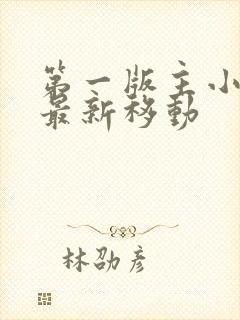 第一版主小
最新移动
林劭彦